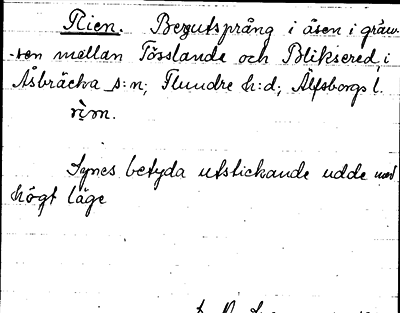 Rien. Bergutsprång i åsen i gräns-
-sen mellan Tösslanda och Bliksered, i
Åsbräcka s:n; Flundre h:d; Älfsborgs l.
Synes betyda utstickande udde med
högt läge